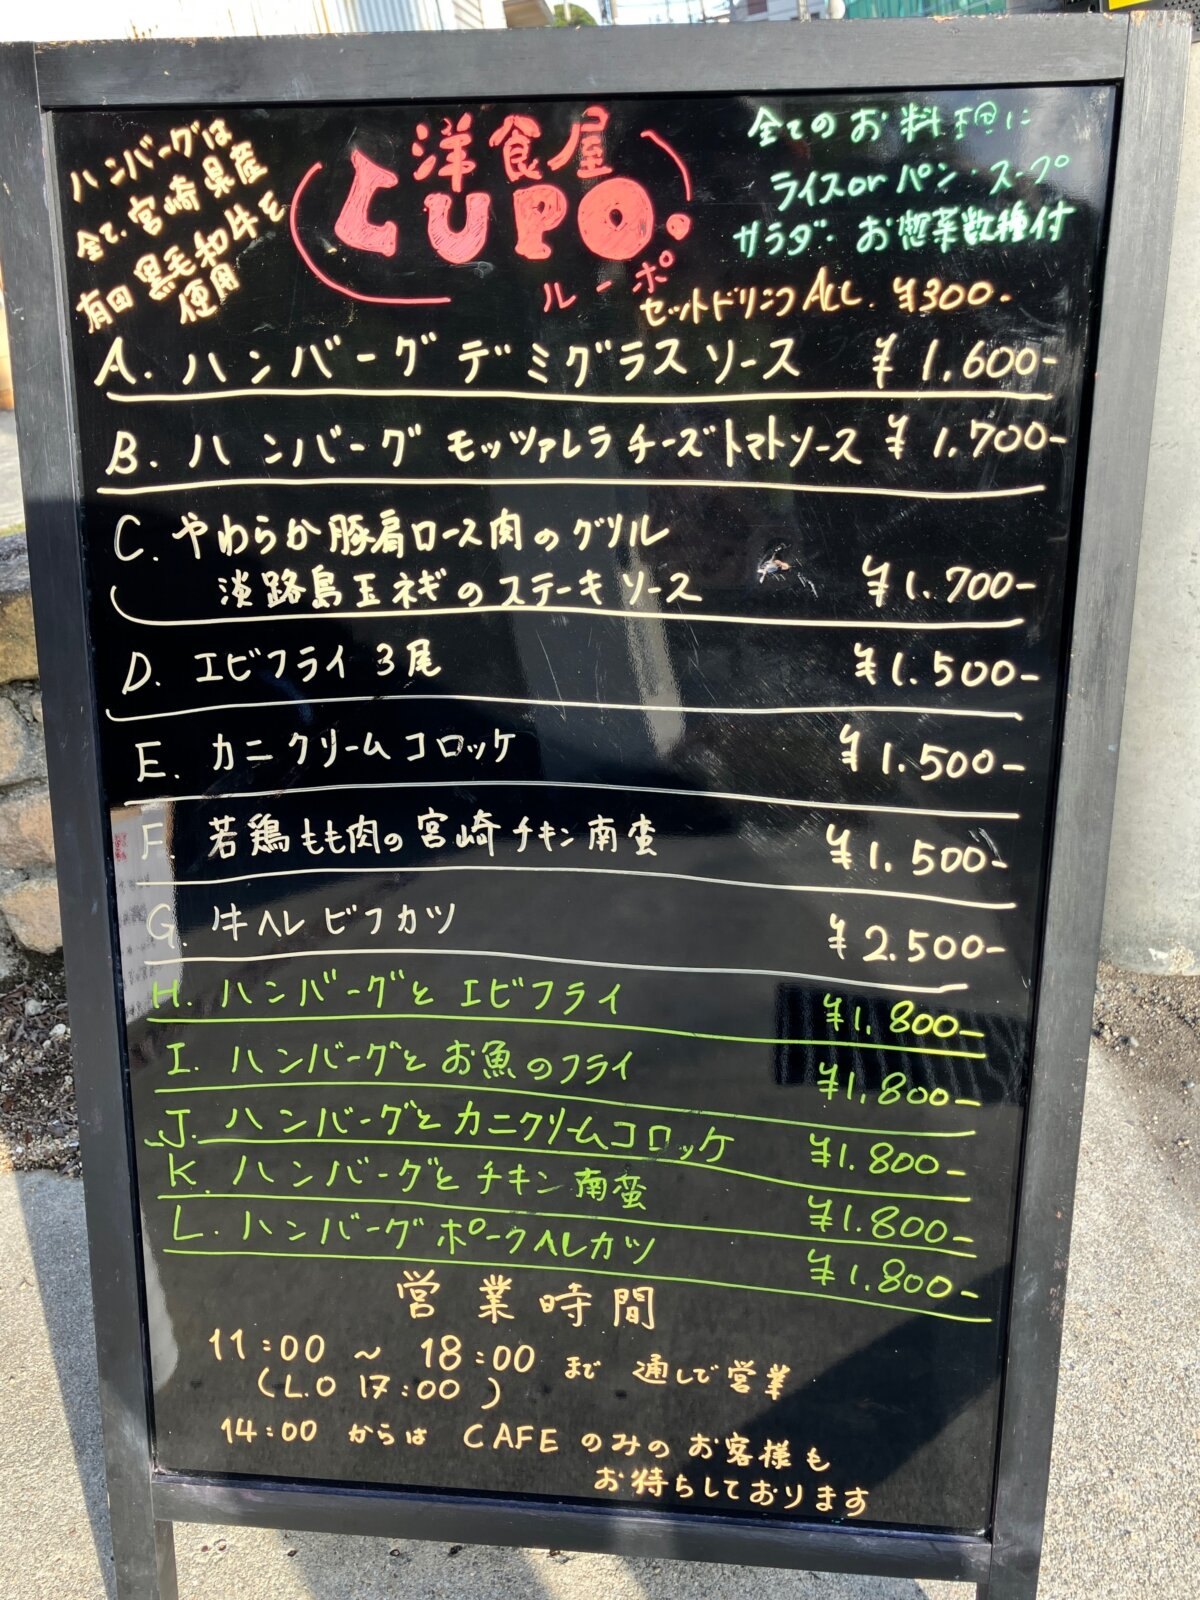 ハンバーグは
全て、宮崎県産
有田黒毛和牛を
使用
洋食屋
LUPO.
ルーポ
全てのお料理に
ライスorパン・スープ
サラダ・お惣菜数種付
セットドリンクALL ¥300-
A. ハンバーグデミグラスソース ¥1.600-
B. ハンバーグ モッツァレラチーズトマトソース ¥1.700-
C. やわらか豚肩ロース肉のグリル
淡路島玉ネギのステーキソース ¥1.700-
D. エビフライ 3尾 ¥1.500-
E. カニクリームコロッケ ¥1.500-
F. 若鶏もも肉の宮崎チキン南蛮 ¥1.500-
G. 牛ヘレビフカツ ¥2.500-
H. ハンバーグとエビフライ ¥1.800-
I. ハンバーグとお魚のフライ ¥1.800-
J. ハンバーグとカニクリームコロッケ ¥1.800-
K. ハンバーグとチキン南蛮 ¥1.800-
L. ハンバーグポークヘレカツ ¥1.800-
営業時間
11:00 ~ 18:00 まで 通しで営業
(L.O 17:00 )
14:00 からは CAFEのみのお客様も
お待ちしております